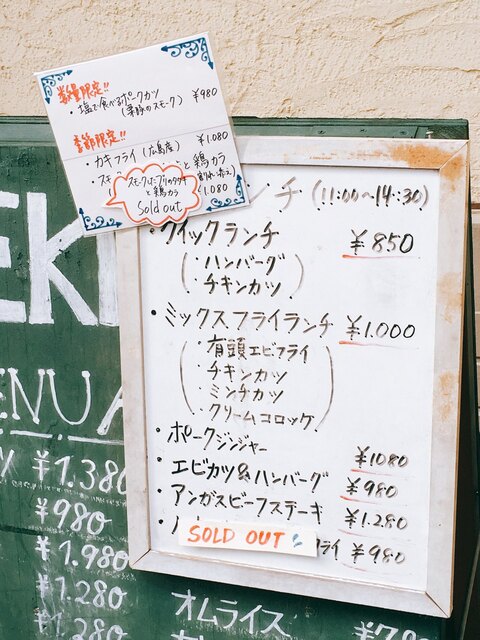 数量限定!!
・塩で食べるポークカツ ¥980
季節限定!! ¥1,080
・カキフライ(広島産)
・スモ と鶏カラ
スモークした
と鶏カラ 1,080
Sold out
ンチ (11:00〜14:30)
・クイックランチ ¥850
・ハンバーグ
・チキンカツ
・ミックスフライランチ ¥1,000
・有頭エビフライ
・チキンカツ
・ミンチカツ
・クリームコロッケ
・ポークジンジャー ¥1080
・エビカツ&ハンバーグ ¥980
・アンガスビーフステーキ ¥1,280
SOLD OUT
ライ ¥980
EK
ENU
¥1.380
¥980
¥1.980
¥1.280
1.280
オムライス